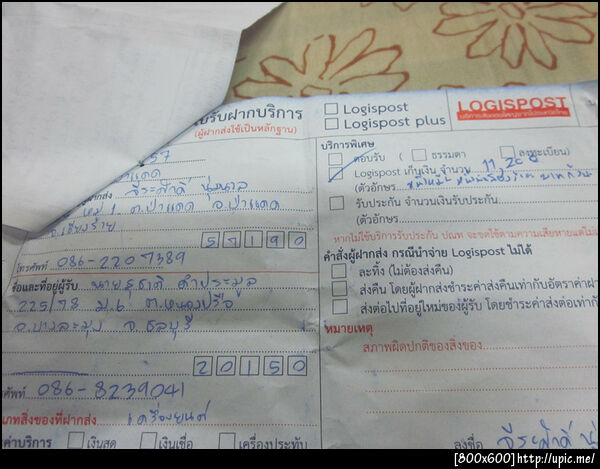 ใบรับฝากบริการ
(ผู้ฝากส่งใช้เป็นหลักฐาน)
57
ป่าแดด
ฝากส่ง จีระศักดิ์
หมู่ 1 ต.ป่าแดด อ.ป่าแดด
จ.เชียงราย
57190
โทรศัพท์ 086-2207389
ชื่อและที่อยู่ผู้รับ นายสุชาติ คำประมูล
225/78 ม.6 ต.หนองปรือ
อ.บางละมุง จ.ชลบุรี
20150
ศัพท์ 086-8239041
เภทสิ่งของที่ฝากส่ง เครื่องยนต์
ค่าบริการ เงินสด เงินเชื่อ เครื่องประทับ
Logispost
Logispost plus
LOGISPOST
บริการพิเศษ
ตอบรับ ( ธรรมดา ลงทะเบียน)
Logispost เก็บเงิน จำนวน 11,200
(ตัวอักษร
รับประกัน จำนวนเงินรับประกัน
(ตัวอักษร
หากไม่ใช้บริการรับประกัน ปณท จะชดใช้ตามความเสียหายแต่ไม่
คำสั่งผู้ฝากส่ง กรณีนำจ่าย Logispost ไม่ได้
ละทิ้ง (ไม่ต้องส่งคืน)
ส่งคืน โดยผู้ฝากส่งชำระค่าส่งคืนเท่ากับอัตราค่าฝาก
ส่งต่อไปที่อยู่ใหม่ของผู้รับ โดยชำระค่าส่งต่อเท่ากั
หมายเหตุ
สภาพผิดปกติของสิ่งของ
ลงชื่อ จีระศักดิ์
[800x600]http://upic.me/